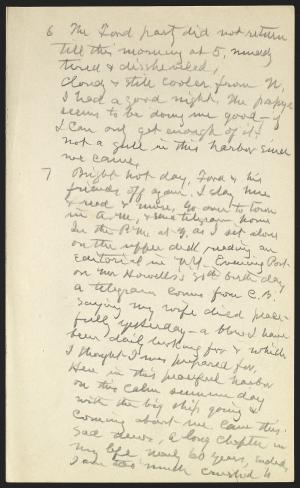 6 The Ford party did not return
till this morning at 5, muddy
tired & dishevelled,
Cloudy & still cooler, from N.
I had a good night. The papaya
seems to be doing me good - if
I can only get enough of it.
not a gull in this harbor since
we came.
7 Bright hot day. Ford & his
friends off again. I stay here
& read & muse. Go over to town
in A.M. & send telegram home
In the P.M. at 4, as I sit alone
on the upper deck reading an
Editorial in N.Y. Evening Post
on Mr Howells's 80th birth day
a telegram comes from C.B.
saying my wife died peace-
fully yesterday - a blow I have
been daily looking for & which
I thought I was prepared for.
Here in this peaceful harbor
on this calm summer day
with the big ships going &
coming about me came this
sad news, a long chapter in
my life nearly 60 years, ended,
I am too much crushed to